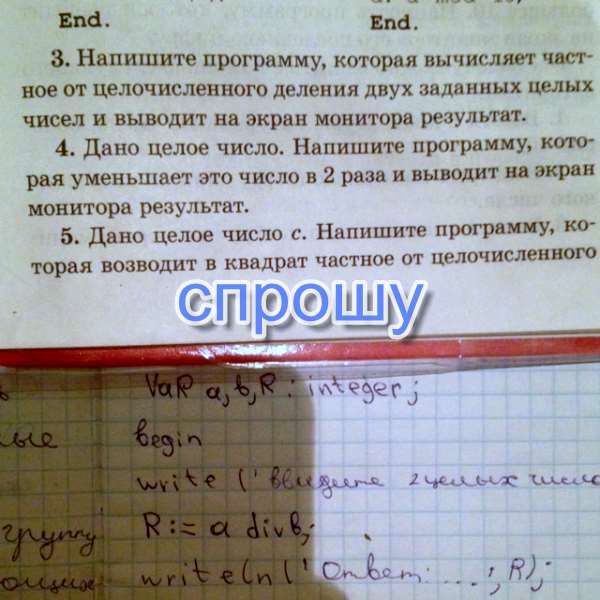 End. End.
3. Напишите программу, которая вычисляет част-
ное от целочисленного деления двух заданных целых
чисел и выводит на экран монитора результат.
4. Дано целое число. Напишите программу, кото-
рая уменьшает это число в 2 раза и выводит на экран
монитора результат.
5. Дано целое число с. Напишите программу, ко-
торая возводит в квадрат частное от целочисленного
спрошу
VaR a,b,R: integer;
begin
write ('введите 2 целых число
группу R:= a div b;
writeln ('Ответ: ...', R);